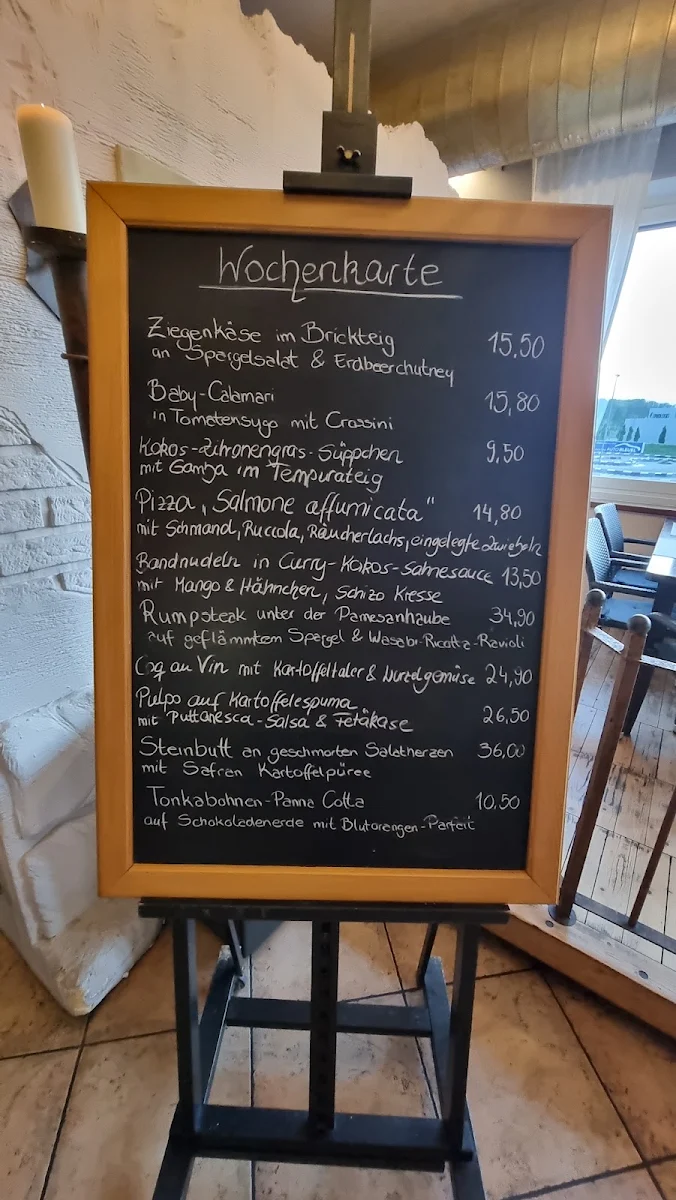 Wochenkarte
Ziegenkäse im Brickteig 15,50
an Spargelsalat & Erdbeerchutney
Baby-Calamari 15,80
in Tomatensugo mit Crossini
Kokos-Zitronengras-Süppchen 9,50
mit Gamba im Tempurateig
Pizza „Salmone affumicata" 14,80
mit Schmand, Ruccola, Räucherlachs, eingelegte Zwiebeln
Bandnudeln in Curry-Kokos-Sahnesauce 13,50
mit Mango & Hähnchen, Schizo Kresse
Rumpsteak unter der Pamesanhaube 34,90
auf geflämmtem Spargel & Wasabi-Ricotta-Ravioli
Coq au Vin mit Kartoffeltaler & Wurzelgemüse 24,90
Pulpo auf Kartoffelespuma 26,50
mit Puttanesca-Salsa & Fetakäse
Steinbutt an geschmorten Salatherzen 36,00
mit Safran Kartoffelpüree
Tonkabohnen-Panna Cotta 10,50
auf Schokoladenerde mit Blutorangen-Parfeit